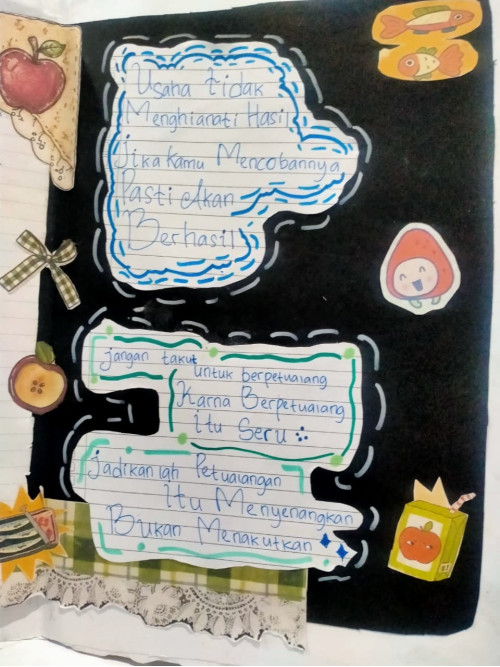 Usaha tidak
Menghianati Hasil
Jika Kamu Mencobannya
Pasti Akan
Berhasil
jangan takut
untuk berpetualang
Karna Berpetualang
itu Seru
Jadikanlah Petualangan
Itu Menyenangkan
Bukan Menakutkan